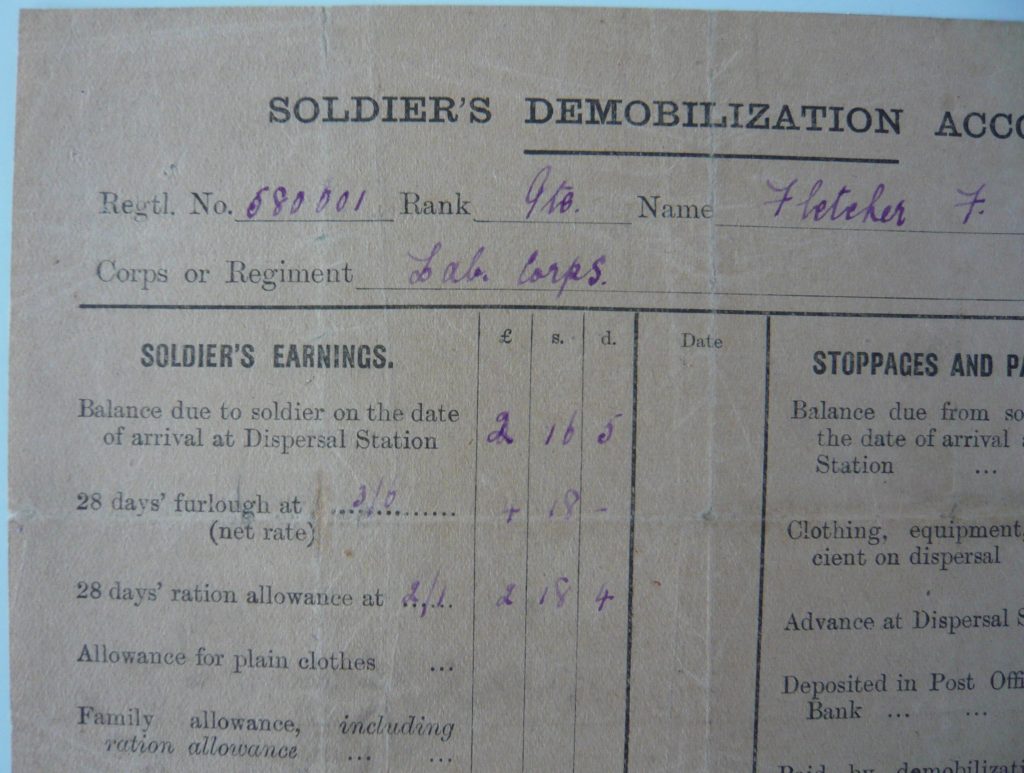 SOLDIER'S DEMOBILIZATION ACCO
Regtl. No. 580001 Rank Pte. Name Fletcher F.
Corps or Regiment Lab. Corps.
£ s. d. Date
SOLDIER'S EARNINGS.
Balance due to soldier on the date
of arrival at Dispersal Station 2 16 5
28 days' furlough at 3/6
(net rate) 4 18 -
28 days' ration allowance at 2/1. 2 18 4
Allowance for plain clothes ...
Family allowance, including
ration allowance ... ...
STOPPAGES AND PA
Balance due from so
the date of arrival
Station ...
Clothing, equipment,
cient on dispersal
Advance at Dispersal S
Deposited in Post Offi
Bank ... ...
Paid by demobilizati